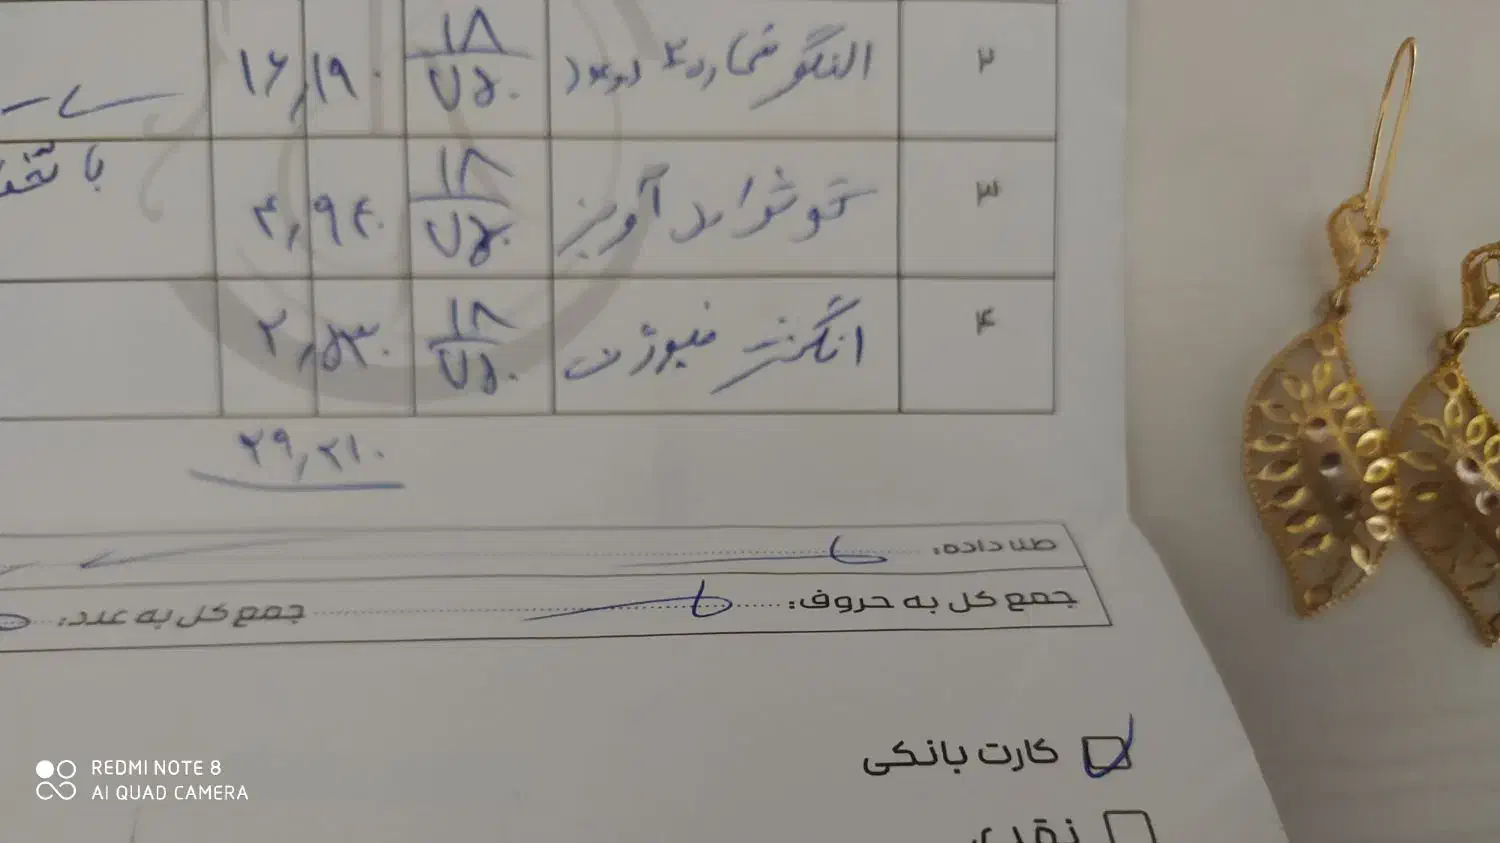 ۲ النگو شماره ۲ ۱۸/۷۵۰ ۱۶,۱۹۰
۳ گوشواره آویز ۱۸/۷۵۰ ۴,۹۴۰ با تخف
۴ انگشتر فیوژن ۱۸/۷۵۰ ۲,۵۳۰
۲۹,۲۱۰
طلا داده:
جمع کل به حروف: جمع کل به عدد:
کارت بانکی
نقدی
REDMI NOTE 8
AI QUAD CAMERA